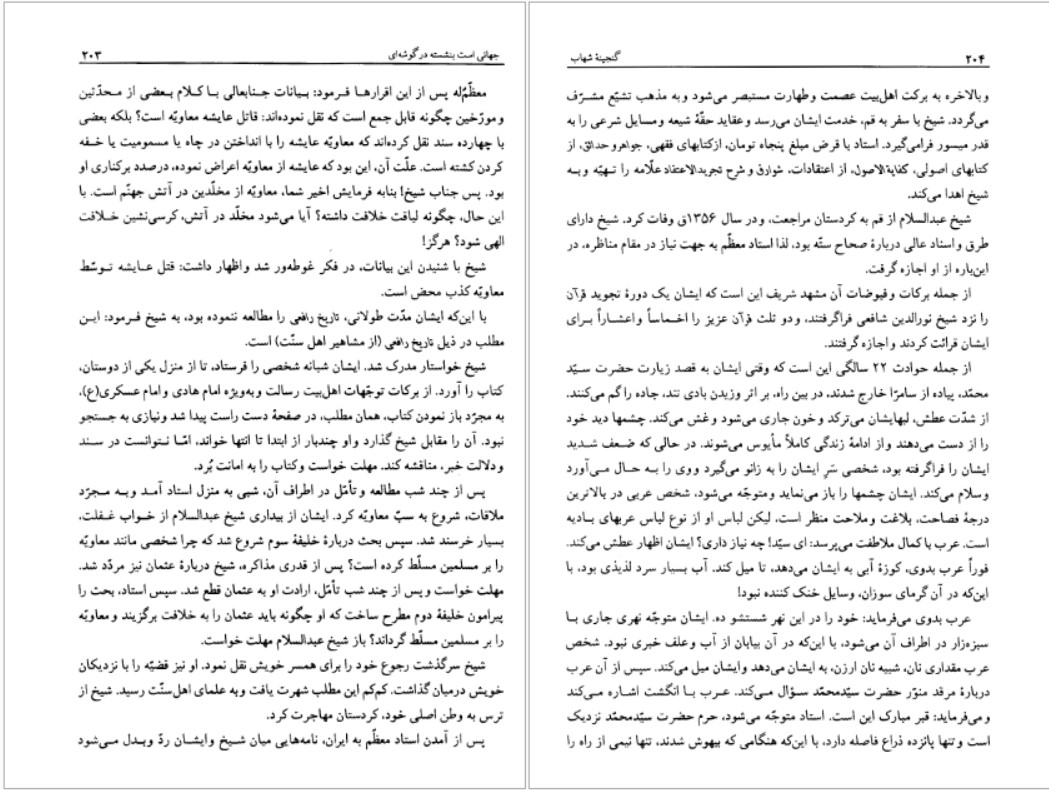 جهانی است بنشسته در گوشه‌ای ۲۰۳
معظّم‌له پس از این اقرارها فرمود: بیانات جنابعالی با کلام بعضی از محدّثین
و مورّخین چگونه قابل جمع است که نقل نموده‌اند: قاتل عایشه معاویّه است؟ بلکه بعضی
با چهارده سند نقل کرده‌اند که معاویّه عایشه را با انداختن در چاه یا مسمومیت یا خفه
کردن کشته است. علّت آن، این بود که عایشه از معاویّه اعراض نموده، درصدد برکناری او
بود. پس جناب شیخ! بنابه فرمایش اخیر شما، معاویّه از مخلّدین در آتش جهنّم است. با
این حال، چگونه لیاقت خلافت داشته؟ آیا می‌شود مخلّد در آتش، کرسی‌نشین خلافت
الهی شود؟ هرگز!
شیخ با شنیدن این بیانات، در فکر غوطه‌ور شد و اظهار داشت: قتل عایشه توسّط
معاویّه کذب محض است.
با این‌که ایشان مدّت طولانی، تاریخ رافعی را مطالعه ننموده بود، به شیخ فرمود: این
مطلب در ذیل تاریخ رافعی (از مشاهیر اهل سنّت) است.
شیخ خواستار مدرک شد. ایشان شبانه شخصی را فرستاد، تا از منزل یکی از دوستان،
کتاب را آورد. از برکات توجّهات اهل‌بیت رسالت و به‌ویژه امام هادی و امام عسکری(ع)،
به مجرّد باز نمودن کتاب، همان مطلب، در صفحهٔ دست راست پیدا شد و نیازی به جستجو
نبود. آن را مقابل شیخ گذارد و او چندبار از ابتدا تا انتها خواند، امّا نتوانست در سند
و دلالت خبر، مناقشه کند. مهلت خواست و کتاب را به امانت بُرد.
پس از چند شب مطالعه و تأمّل در اطراف آن، شبی به منزل استاد آمد و به مجرّد
ملاقات، شروع به سبّ معاویّه کرد. ایشان از بیداری شیخ عبدالسلام از خواب غفلت،
بسیار خرسند شد. سپس بحث دربارهٔ خلیفهٔ سوم شروع شد که چرا شخصی مانند معاویّه
را بر مسلمین مسلّط کرده است؟ پس از قدری مذاکره، شیخ دربارهٔ عثمان نیز مردّد شد.
مهلت خواست و پس از چند شب تأمّل، ارادت او به عثمان قطع شد. سپس استاد، بحث را
پیرامون خلیفهٔ دوم مطرح ساخت که او چگونه باید عثمان را به خلافت برگزیند و معاویّه
را بر مسلمین مسلّط گرداند؟ باز شیخ عبدالسلام مهلت خواست.
شیخ سرگذشت رجوع خود را برای همسر خویش نقل نمود. او نیز قضیّه را با نزدیکان
خویش درمیان گذاشت. کم‌کم این مطلب شهرت یافت و به علمای اهل‌سنّت رسید. شیخ از
ترس به وطن اصلی خود، کردستان مهاجرت کرد.
پس از آمدن استاد معظّم به ایران، نامه‌هایی میان شیخ و ایشان ردّ و بدل می‌شود
۲۰۴ گنجینهٔ شهاب
و بالاخره به برکت اهل‌بیت عصمت و طهارت مستبصر می‌شود و به مذهب تشیّع مشرّف
می‌گردد. شیخ با سفر به قم، خدمت ایشان می‌رسد و عقاید حقّهٔ شیعه و مسایل شرعی را به
قدر میسور فرامی‌گیرد. استاد با قرض مبلغ پنجاه تومان، ازکتابهای فقهی، جواهر و حدائق، از
کتابهای اصولی، کفایةالاصول، از اعتقادات، شوارق و شرح تجریدالاعتقاد علّامه را تهیّه و به
شیخ اهدا می‌کند.
شیخ عبدالسلام از قم به کردستان مراجعت، و در سال ۱۳۵۶ق وفات کرد. شیخ دارای
طرق و اسناد عالی دربارهٔ صحاح ستّه بود، لذا استاد معظّم به جهت نیاز در مقام مناظره، در
این‌باره از او اجازه گرفت.
از جمله برکات و فیوضات آن مشهد شریف این است که ایشان یک دورهٔ تجوید قرآن
را نزد شیخ نورالدین شافعی فراگرفتند، و دو ثلث قرآن عزیز را اخماساً و اعشاراً برای
ایشان قرائت کردند و اجازه گرفتند.
از جمله حوادث ۲۲ سالگی این است که وقتی ایشان به قصد زیارت حضرت سیّد
محمّد، پیاده از سامرّا خارج شدند، در بین راه، بر اثر وزیدن بادی تند، جاده را گم می‌کنند.
از شدّت عطش، لبهایشان می‌ترکد و خون جاری می‌شود و غش می‌کند. چشمها دید خود
را از دست می‌دهند و از ادامهٔ زندگی کاملاً مأیوس می‌شوند. در حالی که ضعف شدید
ایشان را فراگرفته بود، شخصی سَرِ ایشان را به زانو می‌گیرد و وی را به حال می‌آورد
و سلام می‌کند. ایشان چشمها را باز می‌نماید و متوجّه می‌شود، شخص عربی در بالاترین
درجهٔ فصاحت، بلاغت و ملاحت منظر است، لیکن لباس او از نوع لباس عربهای بادیه
است. عرب با کمال ملاطفت می‌پرسد: ای سیّد! چه نیاز داری؟ ایشان اظهار عطش می‌کند.
فوراً عرب بدوی، کوزهٔ آبی به ایشان می‌دهد، تا میل کند. آب بسیار سرد لذیذی بود، با
این‌که در آن گرمای سوزان، وسایل خنک کننده نبود!
عرب بدوی می‌فرماید: خود را در این نهر شستشو ده. ایشان متوجّه نهری جاری با
سبزه‌زار در اطراف آن می‌شود، با این‌که در آن بیابان از آب و علف خبری نبود. شخص
عرب مقداری نان، شبیه نان ارزن، به ایشان می‌دهد و ایشان میل می‌کند. سپس از آن عرب
دربارهٔ مرقد منوّر حضرت سیّدمحمّد سؤال می‌کند. عرب با انگشت اشاره می‌کند
و می‌فرماید: قبر مبارک این است. استاد متوجّه می‌شود، حرم حضرت سیّدمحمّد نزدیک
است و تنها پانزده ذراع فاصله دارد، با این‌که هنگامی که بیهوش شدند، تنها نیمی از راه را